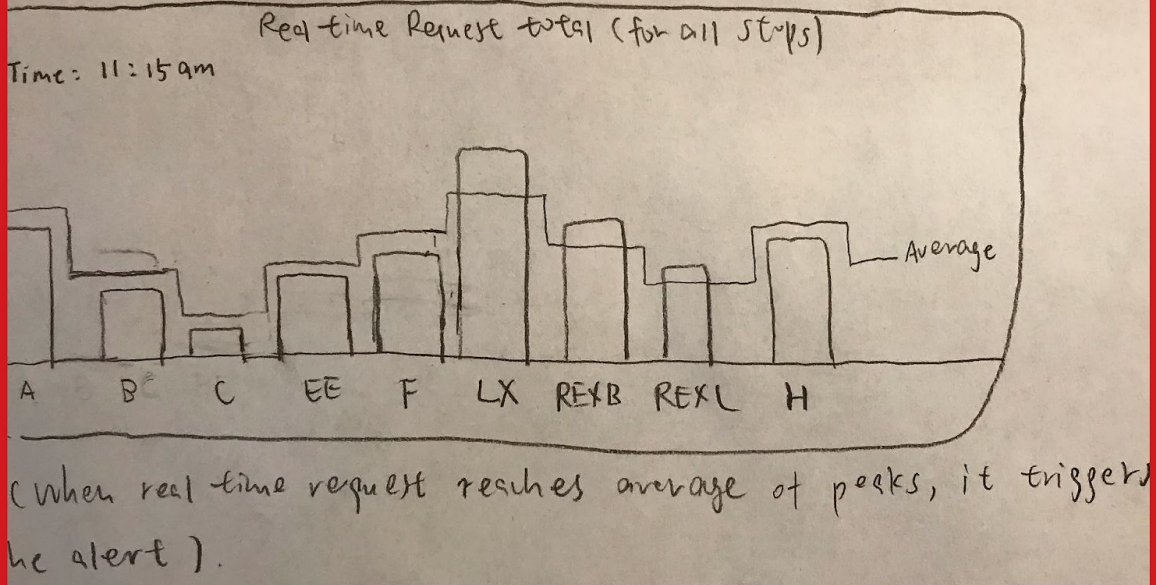 Real time Request total (for all stops)
Time: 11:15am
Average
A B C EE F LX REXB REXL H
(when real time request reaches average of peaks, it triggers
he alert).